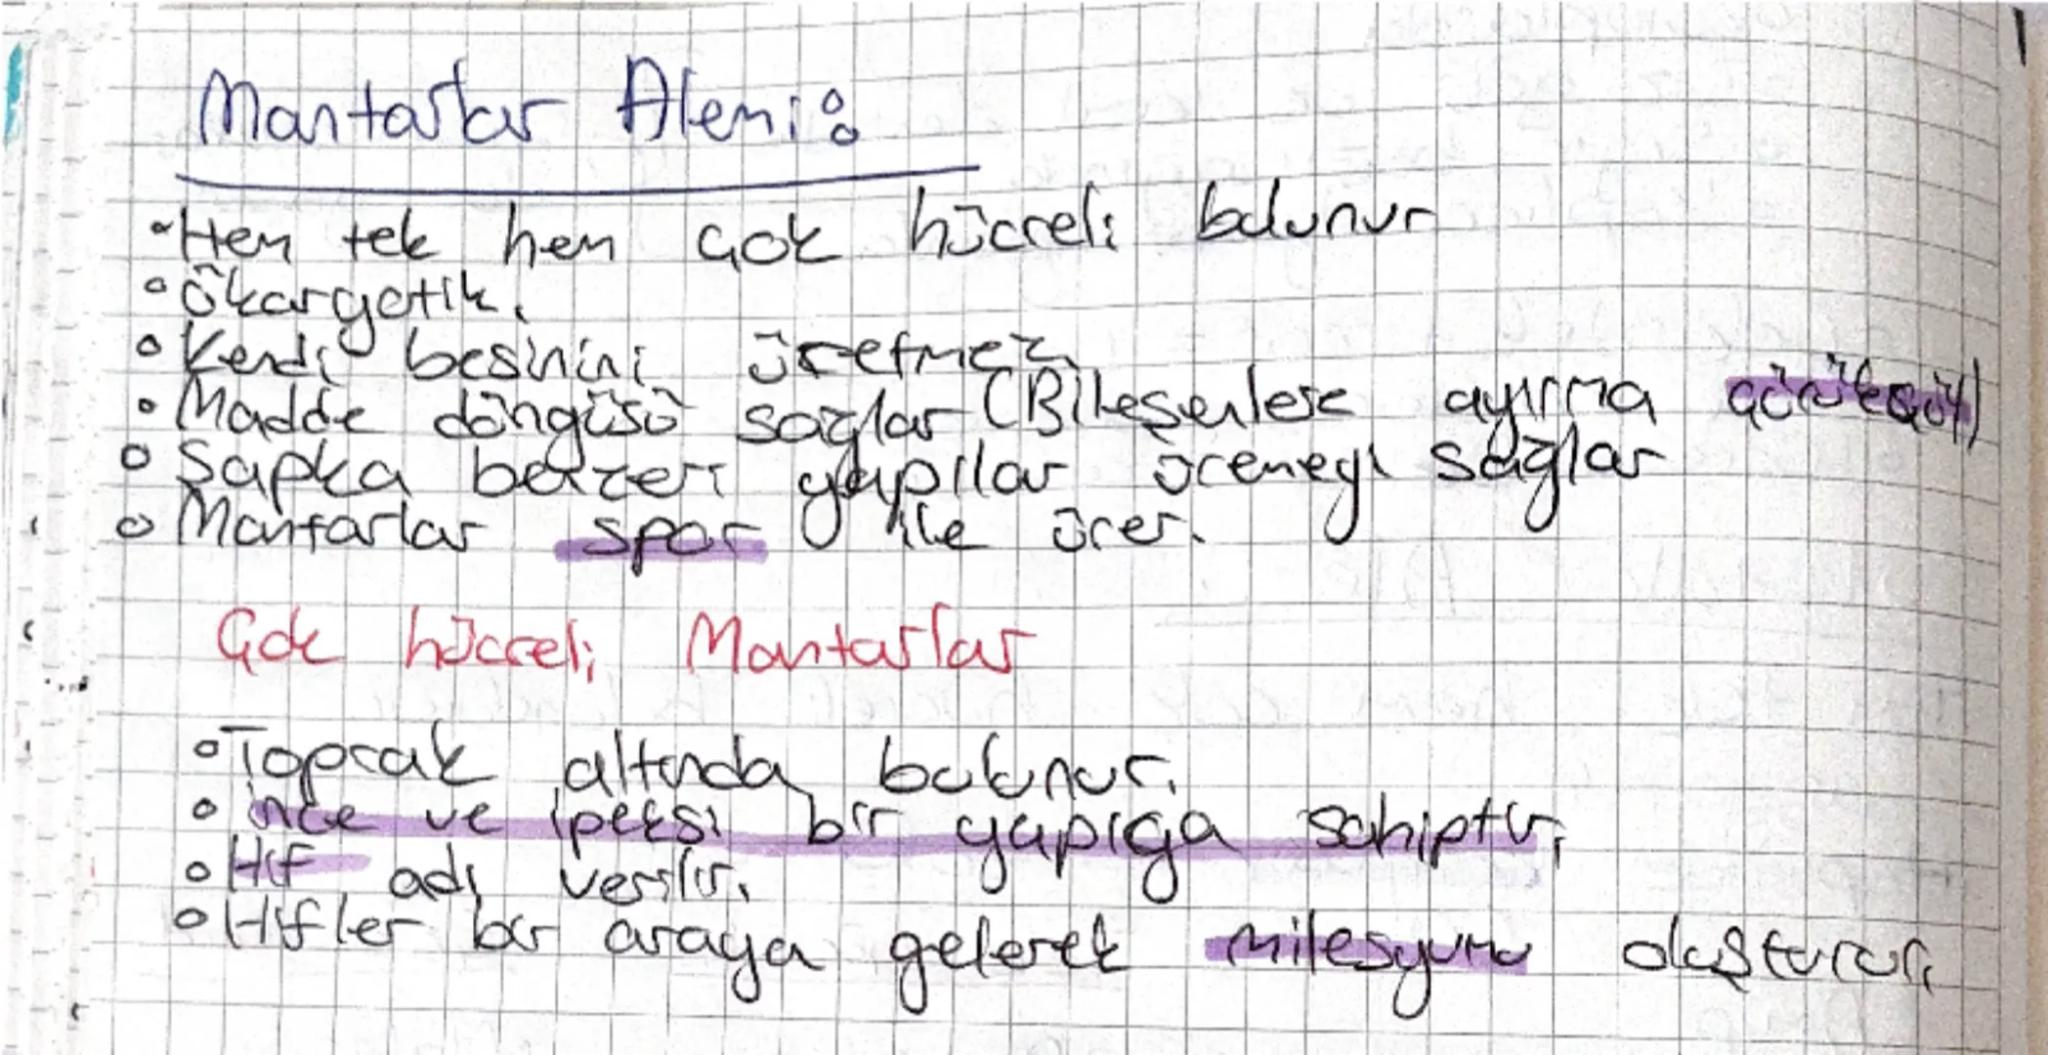 Mantarlar Alemi:
• Hem tek hem çok hücreli bulunur
• Ökaryotik.
• Kendi besinini üretmez.
• Madde döngüsü sağlar (Bileşenlere ayırma
• Şapka benzeri yapılar üremeyi sağlar
• Mantarlar spor ile ürer.
Çok hücreli Mantarlar
• Toprak altında bulunur.
• ince ve ipeksi bir yapıya sahiptir.
• Hif adı verilir.
• Hifler bir araya gelerek milesyum oluşturur.